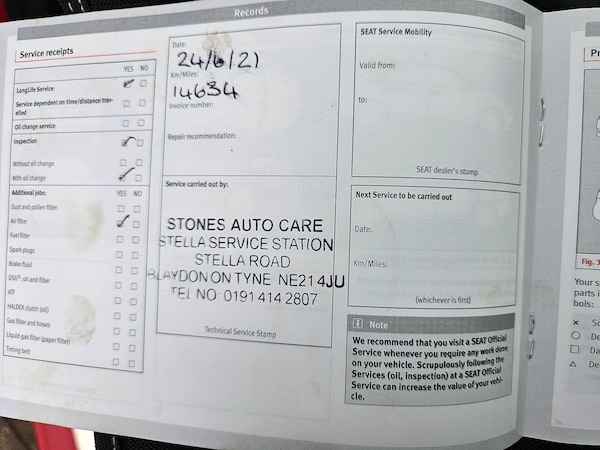 Records
Service receipts
YES NO
LongLife Service:
Service dependent on time/distance trav-
elled
Oil change service
Inspection
Without oil change
With oil change
Additional jobs: YES NO
Dust and pollen filter
Air filter
Fuel filter
Spark plugs
Brake fluid
DSG®: oil and filter
ATF
HALDEX clutch (oil)
Gas filter and hoses
Liquid gas filter (paper filter)
Timing belt
Date:
24/6/21
Km/Miles:
14634
Invoice number:
Repair recommendation:
Service carried out by:
STONES AUTO CARE
STELLA SERVICE STATION
STELLA ROAD
BLAYDON ON TYNE NE21 4JU
TEL NO: 0191 414 2807
Technical Service Stamp
SEAT Service Mobility
Valid from:
to:
SEAT dealer's stamp
Next Service to be carried out
Date:
Km/Miles:
(whichever is first)
i Note
We recommend that you visit a SEAT Official
Service whenever you require any work done
on your vehicle. Scrupulously following the
Services (oil, inspection) at a SEAT Official
Service can increase the value of your vehi-
cle.
Pr
Fig. 3
Your s
parts i
bols:
× So
○ De
□ Da
△ De